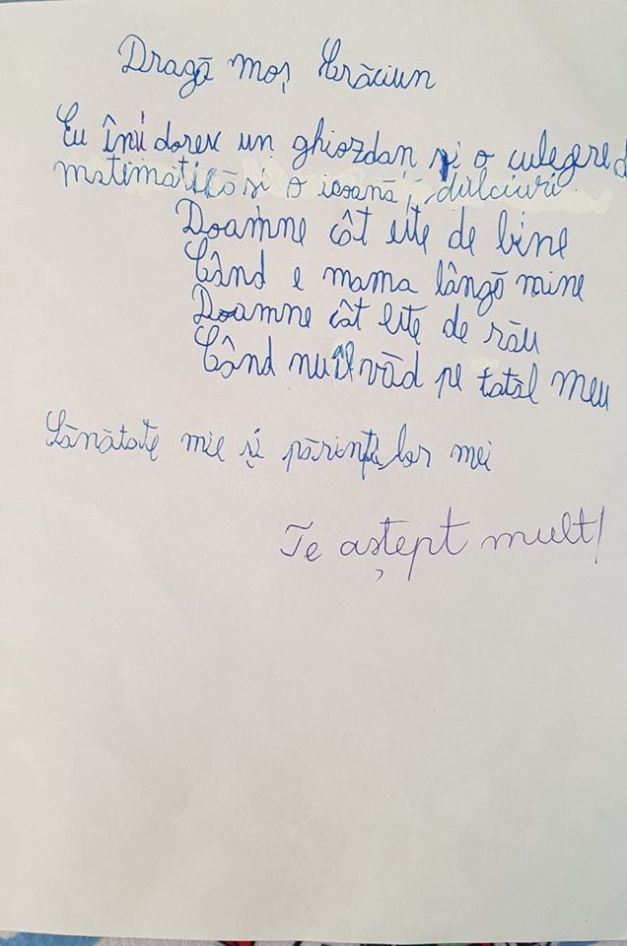 Dragă moș Crăciun
Eu înui doresc un ghiozdan și o culegere d
matimatikă și o icoană, dulciuri.
Doamne cât este de bine
Când e mama lângă mine
Doamne cât este de rău
Când nu îl văd pe tatăl meu
Sănătate mie și părinților mei
Te aștept mult!